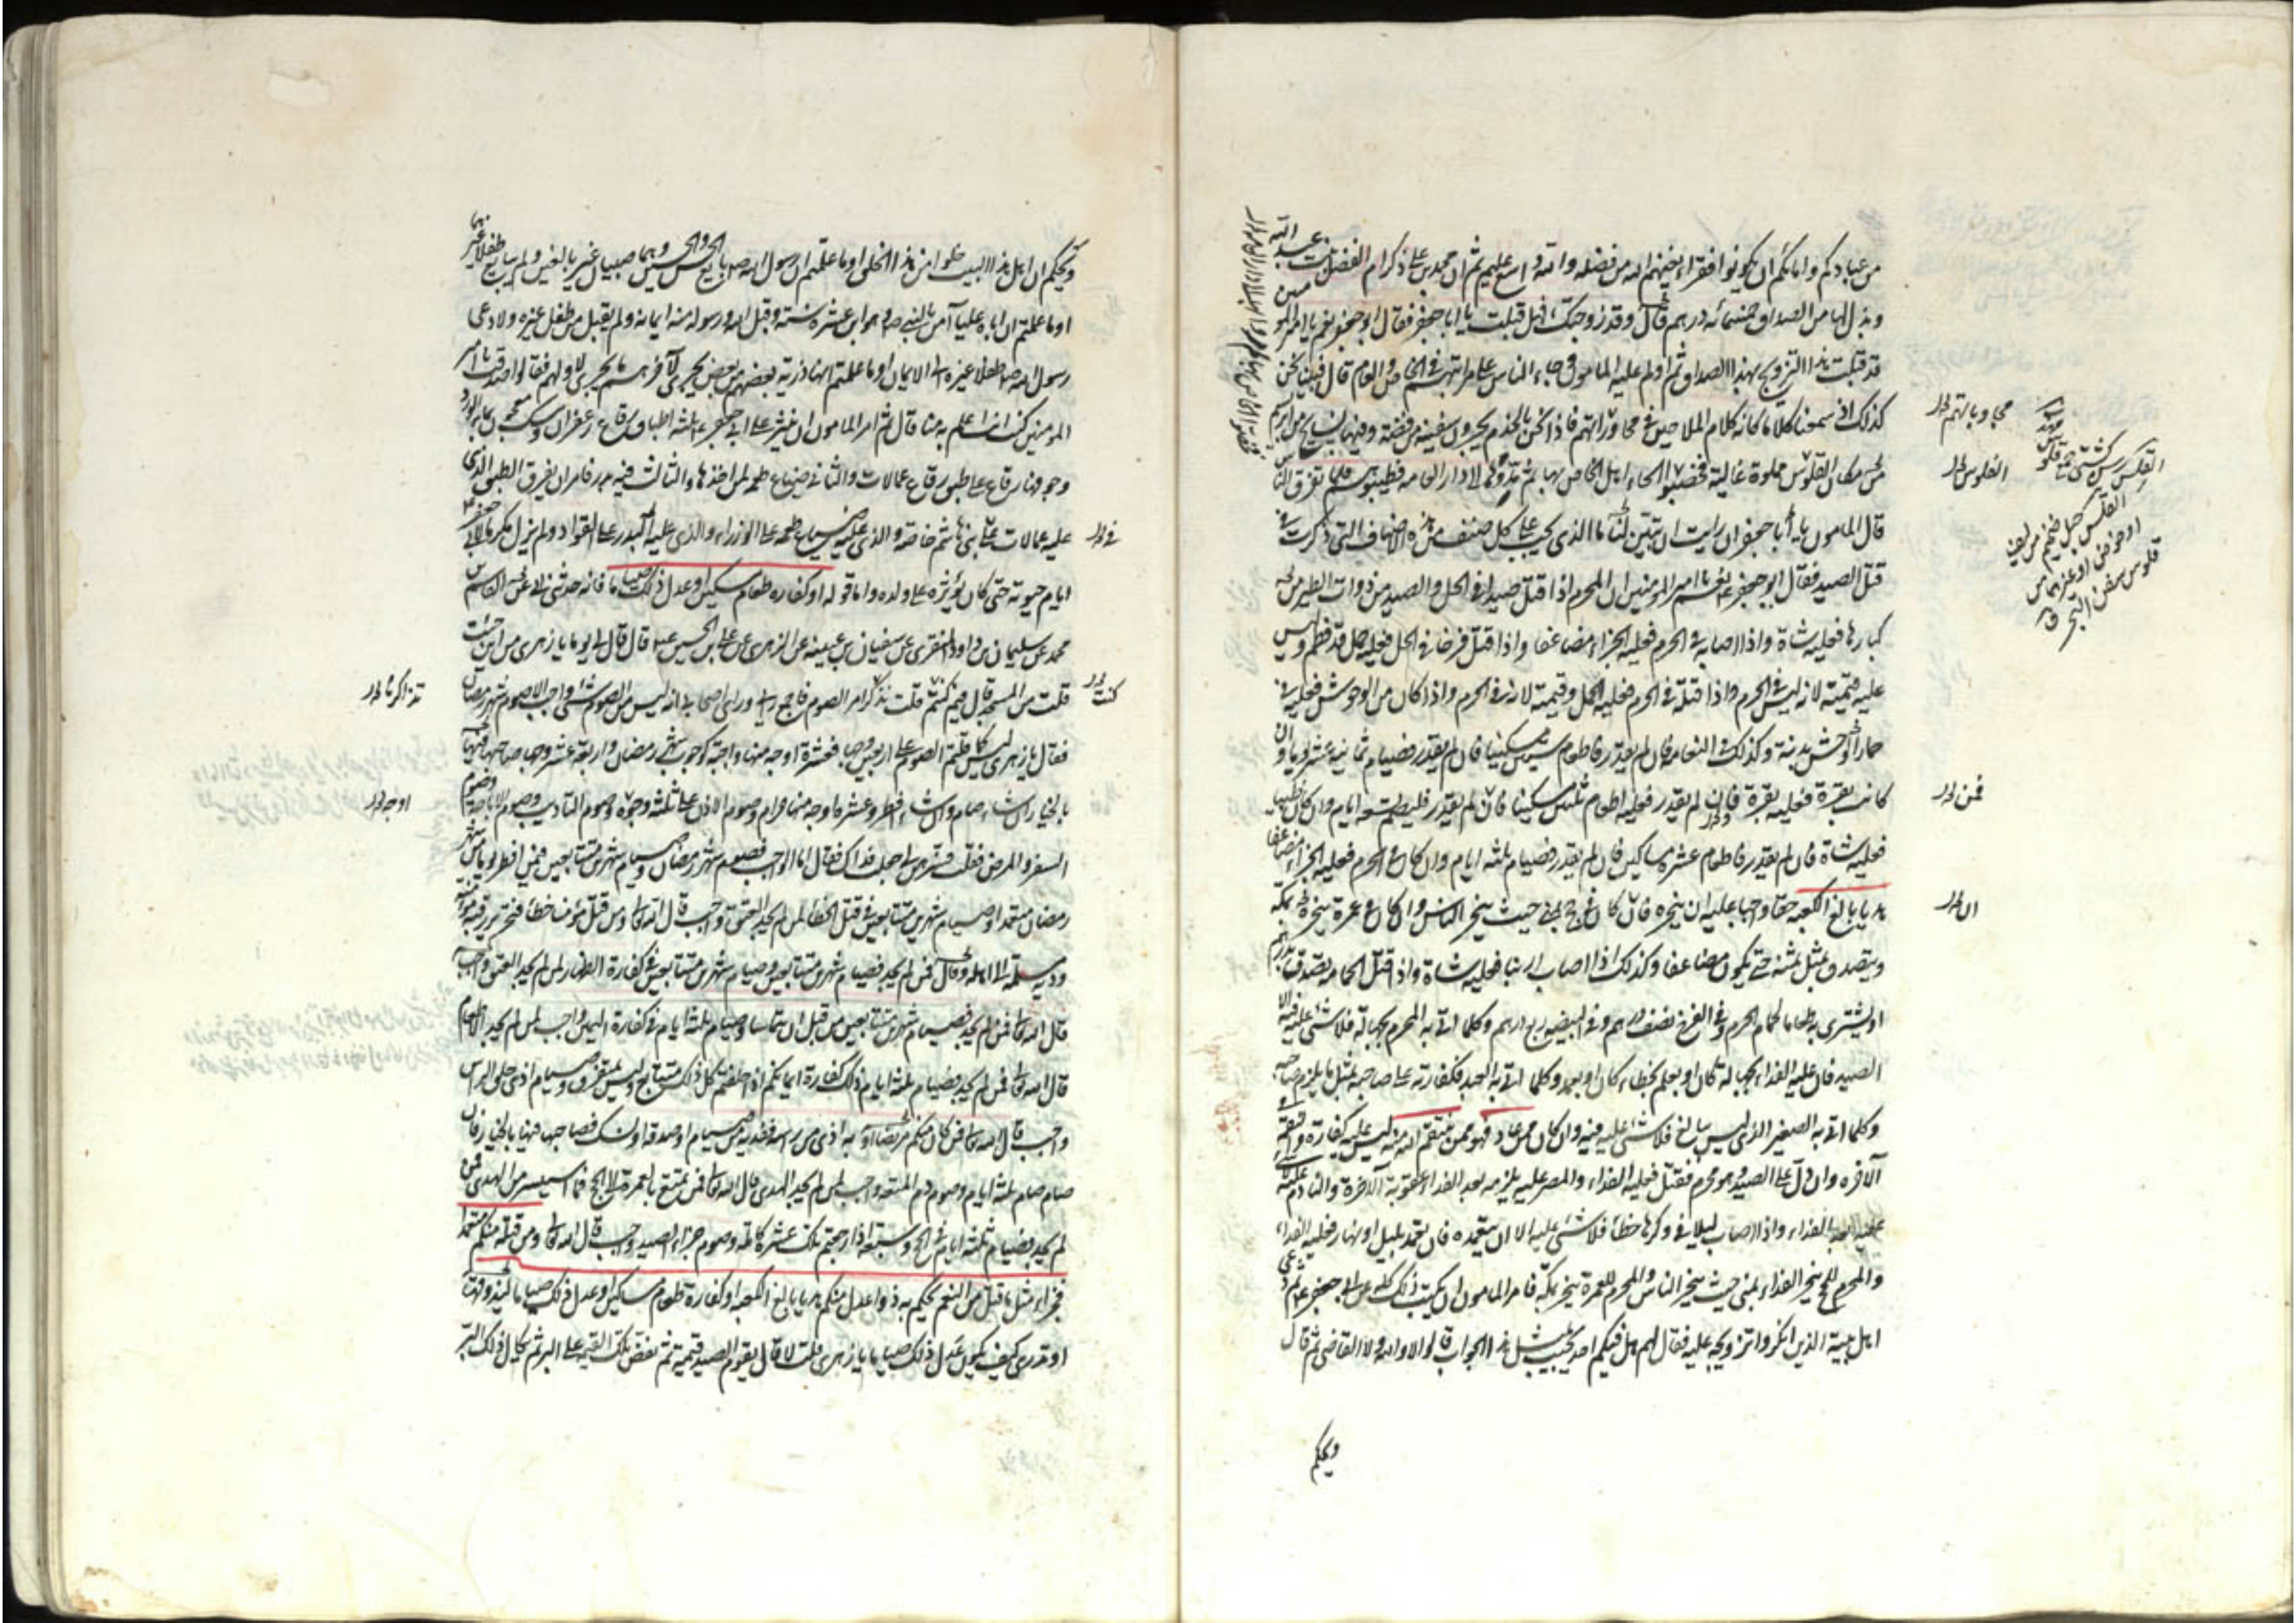 من عبادكم وامائكم ان يكونوا فقراء يغنيهم الله من فضله والله واسع عليم ثم ان محمد بن علي ذكر ام الفضل بنت عبد الله
وبذل لها من الصداق خمسمائه درهم قال وقد زوجتك فهل قبلت يا ابا جعفر فقال ابو جعفر نعم يا امير المومنين
قد قبلت هذا التزويج بهذا الصداق ثم اولم عليه المامون وجاء الناس على مراتبهم في الخاص والعام قال فبينا نحن
كذلك اذ سمعنا كلاما كانه كلام الملاحين في محاوراتهم فاذا نحن بالخدم يجرون سفينه من فضة وفيها نسايج من ابريسم
مكان القلوس مملوة غالية فخضبوا لحاء اهل الخاص بها ثم مدوها الى دار العامه فطيبوهم فلما تفرق الناس
قال المامون يا ابا جعفر ان رايت ان تبين لنا ما الذي يجب على كل صنف من هذه الاصناف التي ذكرت في
قتل الصيد فقال ابو جعفر نعم يا امير المومنين ان المحرم اذا قتل صيدا في الحل والصيد من ذوات الطير من
كبارها فعليه شاة واذا اصابه في الحرم فعليه الجزاء مضاعفا واذا قتل فرخا في الحل فعليه حمل قد فطم وليس
عليه قيمته لانه ليس في الحرم واذا قتله في الحرم فعليه الحمل وقيمته لانه في الحرم واذا كان من الوحوش فعليه في
حمار الوحش بدنة وكذلك في النعامه فان لم يقدر فاطعام ستين مسكينا فان لم يقدر فصيام ثمانية عشر يوما وان
كانت بقرة فعليه بقرة فان لم يقدر فعليه اطعام ثلثين مسكينا فان لم يقدر فليصم تسعه ايام وان كان ظبيا
فعليه شاة فان لم يقدر فاطعام عشره مساكين فان لم يقدر فصيام ثلثه ايام وان كان في الحرم فعليه الجزاء مضاعفا
هديا بالغ الكعبه حقا واجبا عليه ان ينحره فان كان في حج بمنى حيث ينحر الناس وان كان في عمرة ينحره بمكه
ويتصدق بمثل ثمنه حتى يكون مضاعفا وكذلك اذا اصاب ارنبا فعليه شاة واذا قتل الحمامه تصدق بدرهم
او يشترى به طعاما لحمام الحرم وفي الفرخ نصف درهم وفي البيضه ربع درهم وكلما اتى به المحرم بجهالة فلا شئ عليه فيه الا
الصيد فان عليه الفداء بجهالة كان او بعلم بخطاء كان او بعمد وكلما اتى به العبد فكفارته على صاحبه بمثل ما يلزم صاحبه
وكلما اتى به الصغير الذى ليس ببالغ فلا شئ عليه فيه وان كان ممن عاد فهو ممن ينتقم الله منه ليس عليه كفارة والنقمة في
الاخره وان دل على الصيد وهو محرم فقتل فعليه الفداء والمصر عليه يلزمه بعد الفداء عقوبة الاخرة والنادم عليه لا شئ
عليه بعد الفداء واذا اصاب ليلا في وكرها خطأ فلا شئ عليه الا ان يتعمده فان تعمد بليل او نهار فعليه الفداء
والمحرم للحج ينحر الفداء بمنى حيث ينحر الناس والمحرم للعمرة ينحر بمكة فامر المامون ان يكتب ذلك كله عن ابي جعفر ثم دعى
اهل بيته الذين انكروا تزويجه عليه فقال لهم هل فيكم احد يجيب بمثل هذا الجواب قالوا لا والله ولا القاضى ثم قال
ويحكم
القلوس
فمن
ان
القلس حبل ضخم من ليف
او خوص او غيرهما من
قلوس سفن البحر ق
ويحكم ان اهل هذا البيت خلوا من هذا الخلق اوما علمتم ان رسول الله بايع الحسن والحسين وهما صبيان غير بالغين ولم يبايع طفلا غيرهما
اوما علمتم ان اباه عليا آمن بالنبي وهو ابن عشره سنة وقبل الله ورسوله منه ايمانه ولم يقبل من طفل غيره ولا دعى
رسول الله طفلا غيره الى الايمان اوما علمتم انها ذرية بعضها من بعض يجرى لآخرهم ما يجرى لاولهم فقالوا صدقت يا امير
المومنين كنت انت اعلم به منا قال ثم امر المامون ان ينثر على ابي جعفر ثلثه اطباق رقاع زعفران ومسك معجون بماء الورد
وجوفها رقاع على طبق رقاع عمالات والثاني ضياع طعمه لمن اخذها والثالث فيه بدر فامر ان يفرق الطبق الذي
عليه عمالات على بني هاشم خاصة والذى عليه ضياع طعمه على الوزراء والذى عليه البدر على القواد ولم يزل مكرما لابي جعفر
ايام حيوته حتى كان يؤثره على ولده واما قوله او كفاره طعام مسكين او عدل ذلك صياما فانه حدثني ابي عن القاسم بن
محمد عن سليمان بن داود المنقرى عن سفيان بن عيينه عن الزهرى عن علي بن الحسين قال قال لى يوما يا زهرى من اين جئت
قلت من المسجد قال فيم كنتم قلت تذاكرنا امر الصوم فاجمع رايى وراى اصحابى انه ليس من الصوم شئ واجب الا صوم شهر رمضان
فقال يا زهرى ليس كما قلتم الصوم على اربعين وجها فعشرة اوجه منها واجبة كوجوب شهر رمضان واربعة عشر وجها صاحبها فيها
بالخيار ان شاء صام وان شاء افطر وعشره اوجه منها حرام وصوم الاذن على ثلثة وجوه وصوم التاديب وصوم الاباحة وصوم
السفر والمرض فقلت فسرهن لى جعلت فداك فقال اما الواجب فصوم شهر رمضان وصيام شهرين متتابعين فيمن افطر يوما من شهر
رمضان متعمدا وصيام شهرين متتابعين في قتل الخطأ لمن لم يجد العتق واجب قال الله تعالى ومن قتل مؤمنا خطأ فتحرير رقبة مؤمنة
ودية مسلمة الى اهله وقال فمن لم يجد فصيام شهرين متتابعين وصيام شهرين متتابعين في كفارة الظهار لمن لم يجد العتق واجب
قال الله تعالى فمن لم يجد فصيام شهرين متتابعين من قبل ان يتماسا وصيام ثلثه ايام في كفارة اليمين واجب لمن لم يجد الاطعام
قال الله تعالى فمن لم يجد فصيام ثلثه ايام ذلك كفارة ايمانكم اذا حلفتم كل ذلك متتابع وليس بمتفرق وصيام اذى حلق الراس
واجب قال الله تعالى فمن كان منكم مريضا او به اذى من راسه ففدية من صيام او صدقة او نسك فصاحبها فيها بالخيار فان
صام صام ثلثه ايام وصوم دم المتعه واجب لمن لم يجد الهدى قال الله تعالى فمن تمتع بالعمرة الى الحج فما استيسر من الهدى فمن
لم يجد فصيام ثلثه ايام في الحج وسبعه اذا رجعتم تلك عشرة كامله وصوم جزاء الصيد واجب قال الله تعالى ومن قتله منكم متعمدا
فجزاء مثل ما قتل من النعم يحكم به ذوا عدل منكم هديا بالغ الكعبه او كفارة طعام مساكين او عدل ذلك صياما ليذوق
او تدرى كيف يكون عدل ذلك صياما يا زهرى قلت لا قال يقوم الصيد قيمة ثم تفض تلك القيمه على البر ثم يكال ذلك البر
كنت